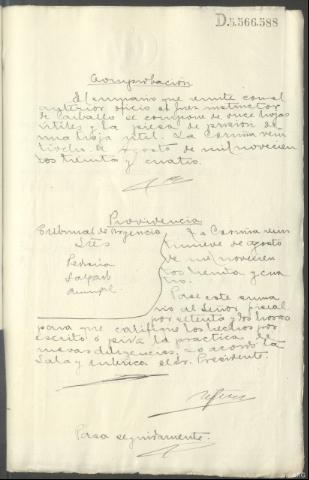 D.5.566.588
Comprobación
El sumario que remite con el
anterior oficio el Juez instructor
de Carballo se compone de once hojas
útiles y la pieza de prisión de
una hoja útil. La Coruña vein
tiocho de Agosto de mil novecien
tos treinta y cuatro.
Providencia
Tribunal de Urgencia
Sres
La Coruña vein
tinueve de agosto
de mil novecien
tos treinta y cua
tro.
Pase este suma
rio al Señor fiscal
por setenta y dos horas
para que califique los hechos por
escrito o pida la practica de
nuevas diligencias; lo acordó la
Sala y rubrica el Sr. Presidente.
Pasa seguidamente.